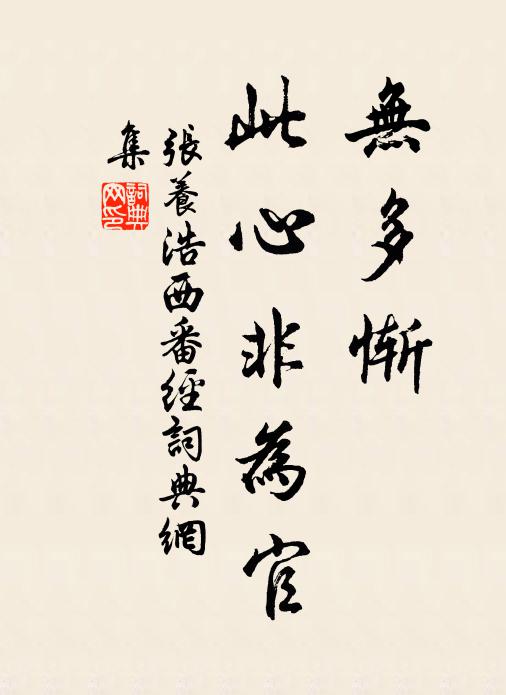 無多慚
此心非為官
張養浩西番經詞典網
集
詞典網印